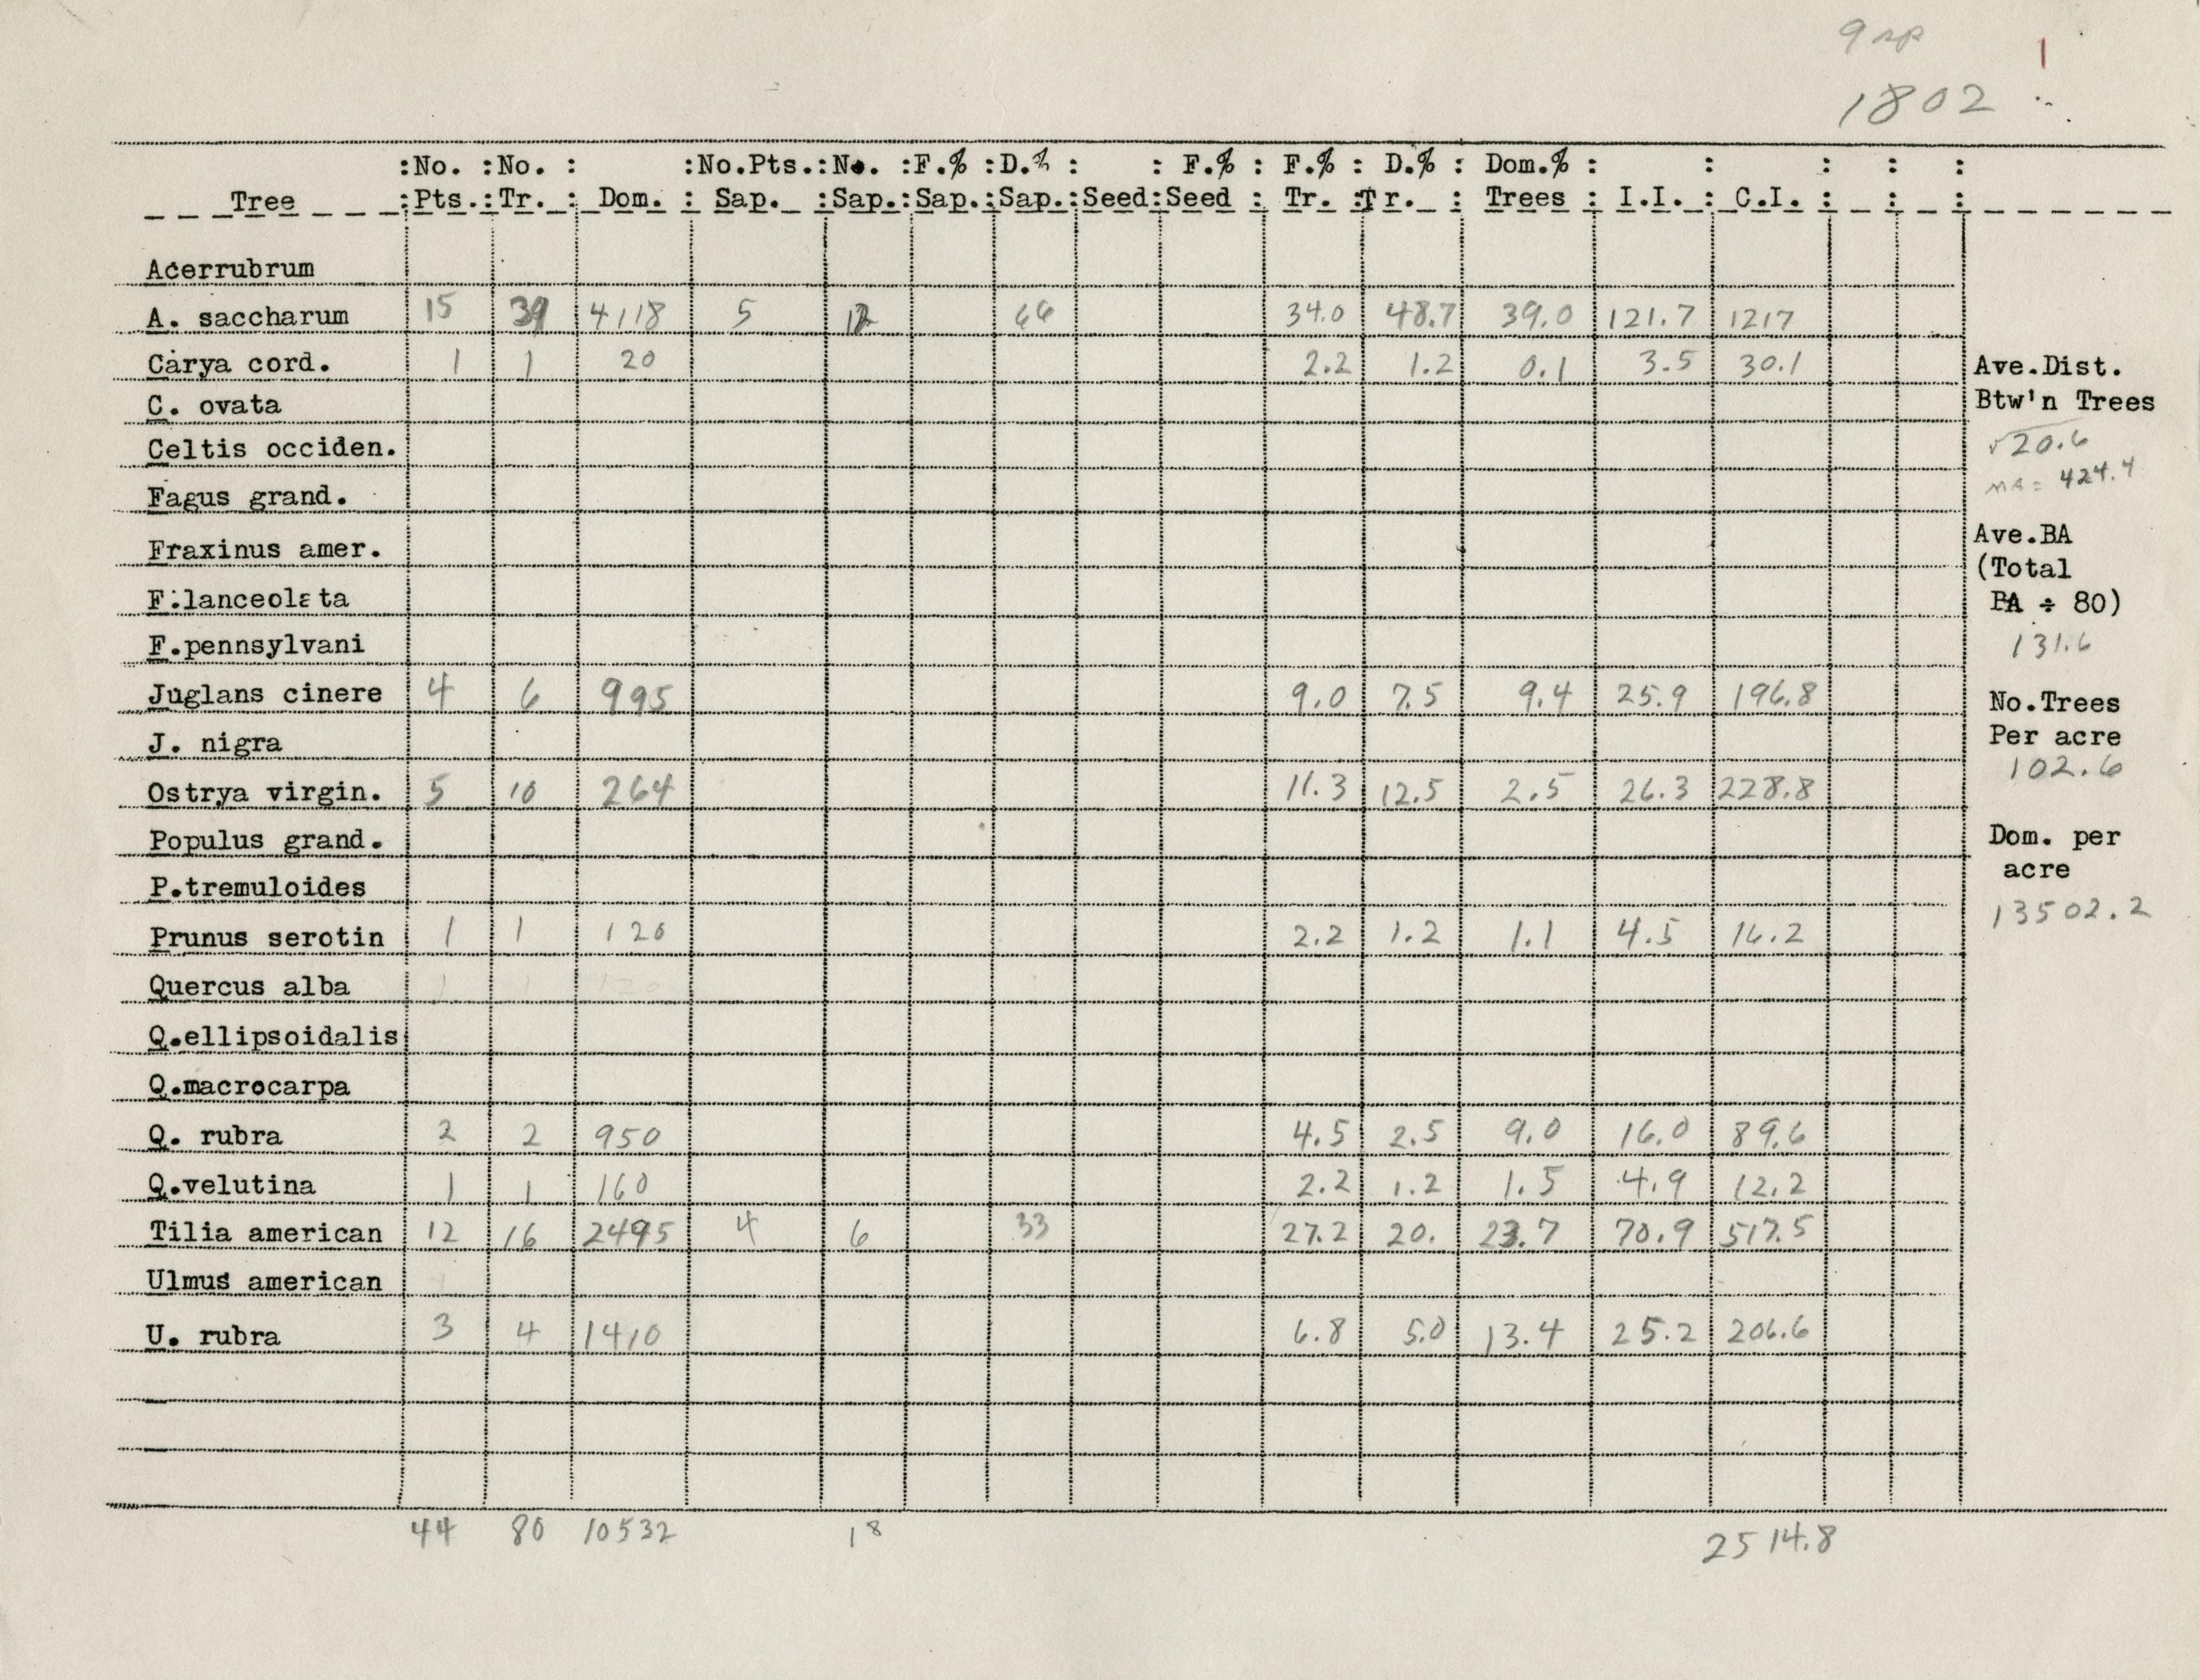 9 sp
1
1802
:No. :No. : :No.Pts.:No. :F.% :D.% : : F.% : F.% : D.% : Dom.% : : : : :
Tree :Pts.:Tr. : Dom. : Sap. :Sap.:Sap.:Sap.:Seed:Seed : Tr. :Tr. : Trees : I.I. : C.I. : : :
Acerrubrum
A. saccharum 15 39 4118 5 12 66 34.0 48.7 39.0 121.7 1217
Carya cord. 1 1 20 2.2 1.2 0.1 3.5 30.1
Ave.Dist.
C. ovata
Btw'n Trees
Celtis occiden.
√20.6
Fagus grand.
MA = 424.4
Fraxinus amer.
Ave.BA
(Total
F.lanceolata
BA ÷ 80)
F.pennsylvani
131.6
Juglans cinere 4 6 995 9.0 7.5 9.4 25.9 196.8
No.Trees
J. nigra
Per acre
102.6
Ostrya virgin. 5 10 264 11.3 12.5 2.5 26.3 228.8
Populus grand.
Dom. per
acre
P.tremuloides
13502.2
Prunus serotin 1 1 120 2.2 1.2 1.1 4.5 16.2
Quercus alba 1 1 120
Q.ellipsoidalis
Q.macrocarpa
Q. rubra 2 2 950 4.5 2.5 9.0 16.0 89.6
Q.velutina 1 1 160 2.2 1.2 1.5 4.9 12.2
Tilia american 12 16 2495 4 6 33 27.2 20. 23.7 70.9 517.5
Ulmus american
U. rubra 3 4 1410 6.8 5.0 13.4 25.2 206.6
44 80 10532 18 2514.8